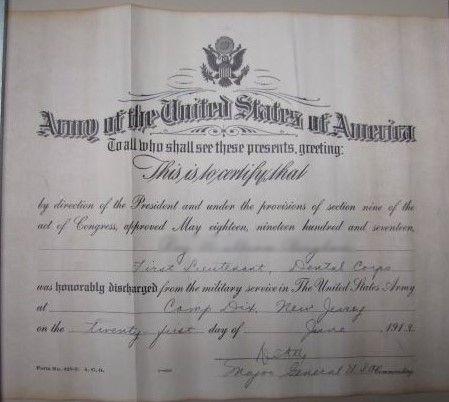 Army of the United States of America
To all who shall see these presents, greeting:
This is to certify that
by direction of the President and under the provisions of section nine of the
act of Congress, approved May eighteen, nineteen hundred and seventeen,
First Lieutenant, Dental Corps
was honorably discharged from the military service in The United States Army
at Camp Dix, New Jersey
on the twenty first day of June, 1919.
Major General U.S.A. Commanding.
Form No. A.G.O.